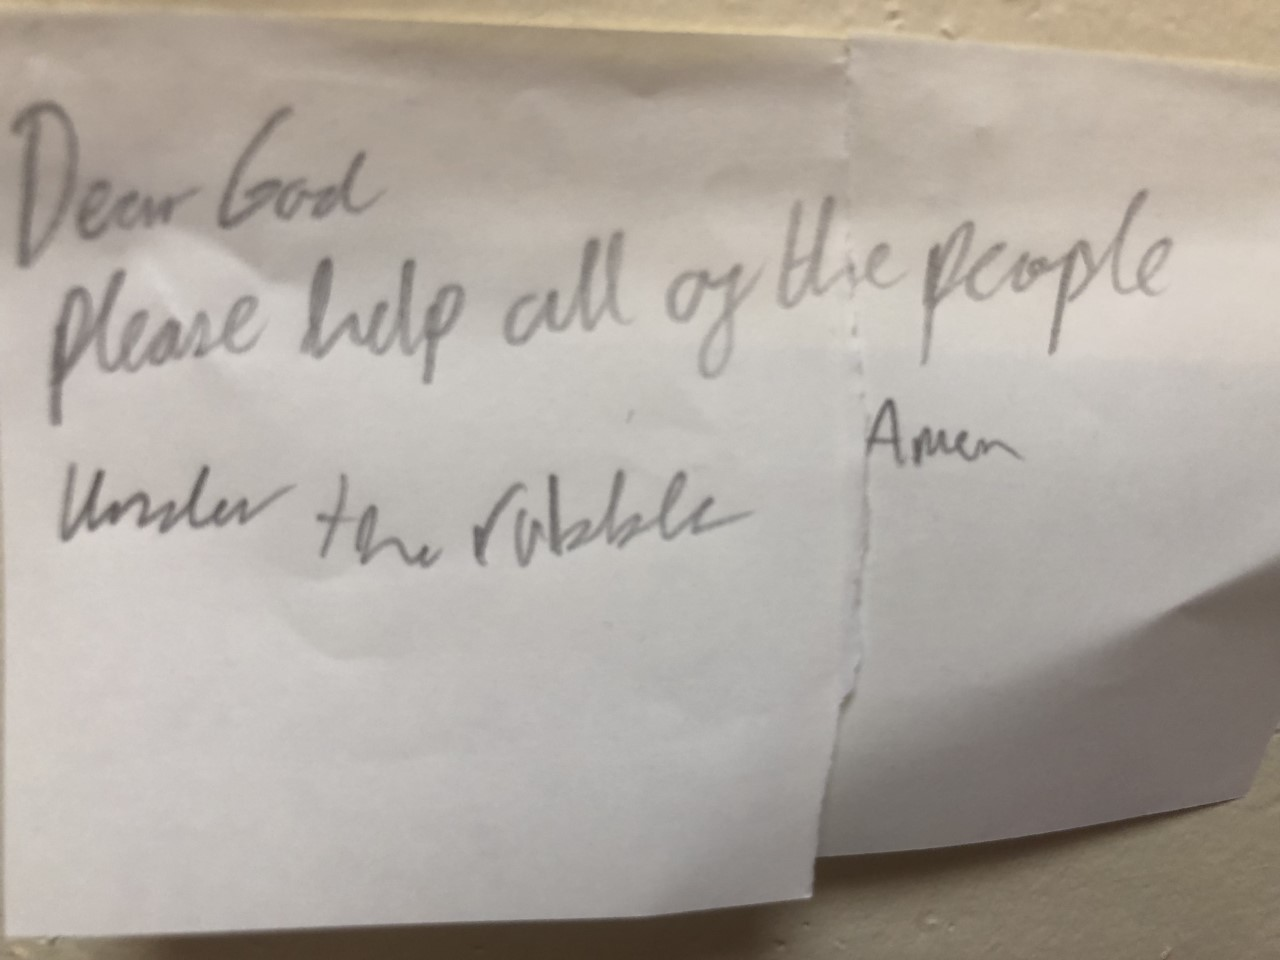 Dear God
please help all of the people
Under the rubble
Amen